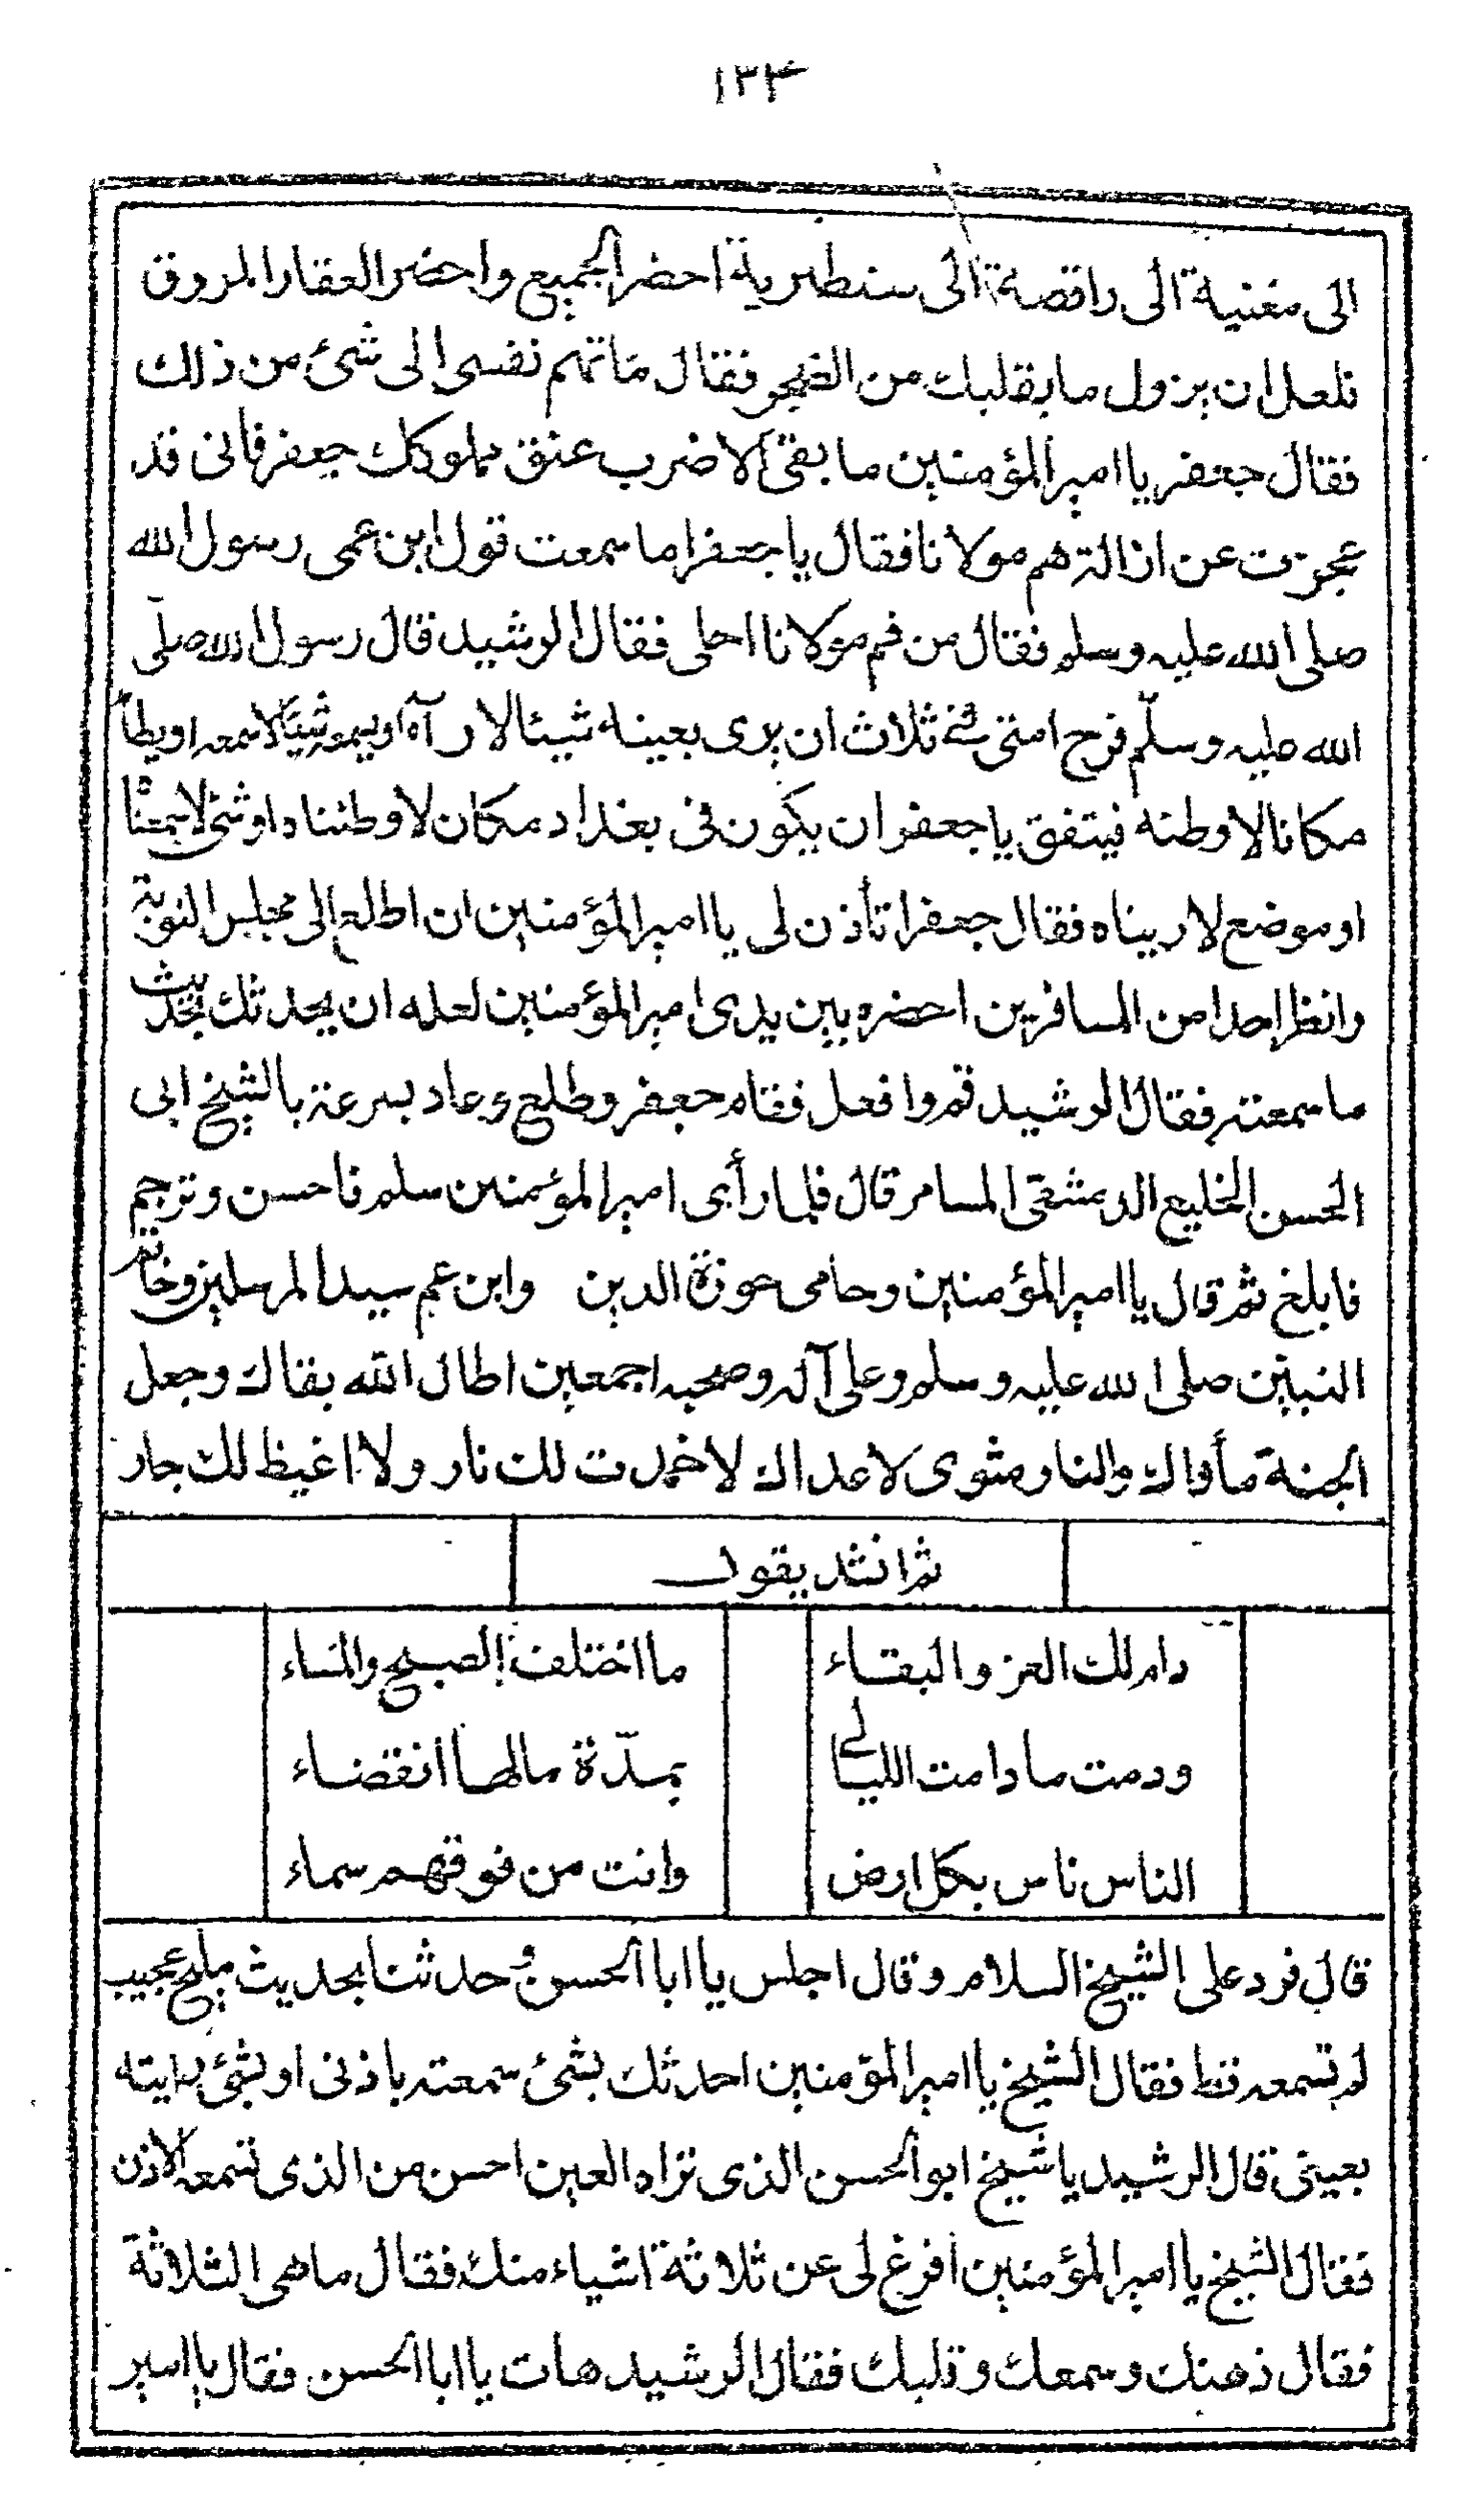 ١٣٤
الى مغنية الى راقصة الى سنطيرية احضر الجميع واحضر العقار المروق
فلعل ان يزول ما بقلبك من الضجر فقال ما تهم نفسى الى شئ من ذلك
فقال جعفر يا امير المؤمنين ما بقى الا ضرب عنق مملوكك جعفر فانى قد
عجزت عن ازالة هم مولانا فقال يا جعفر اما سمعت قول ابن عمى رسول الله
صلى الله عليه وسلم فقال من فم مولانا احلى فقال الرشيد قال رسول الله صلى
الله عليه وسلّم فرح امتى فى ثلاث ان يرى بعينه شيئا لا رآه او يسمع شيئا لا سمعه او يطأ
مكانا لا وطئه فيتفق يا جعفر ان يكون فى بغداد مكان لا وطئناه او شئ لا سمعناه
او موضع لا ريناه فقال جعفر اتأذن لى يا امير المؤمنين ان اطلع الى مجلس النوبة
وانظر احدا من المسافرين احضره بين يدى امير المؤمنين لعله ان يحدثك بحديث
ما سمعته فقال الرشيد قم وافعل فقام جعفر وطلع وعاد بسرعة بالشيخ ابى
الحسن الخليع الدمشقى المسامر قال فلما رأى امير المؤمنين سلم فاحسن وترجم
فابلغ ثم قال يا امير المؤمنين وحامى حوزة الدين وابن عم سيد المرسلين وخاتم
النبيين صلى الله عليه وسلم وعلى آله وصحبه اجمعين اطال الله بقاك وجعل
الجنة مأواك والنار مثوى لاعداك لا خمدت لك نار ولا اغيظ لك جار
ثم انشد يقول
دام لك العز والبقاء ما اختلف الصبح والمساء
ودمت ما دامت الليالى بمدّة ما لها انقضاء
الناس ناس بكل ارض وانت من فوقهم سماء
قال فرد على الشيخ السلام وقال اجلس يا ابا الحسن وحدثنا بحديث مليح عجيب
لم تسمعه قط فقال الشيخ يا امير المؤمنين احدثك بشئ سمعته باذنى او بشئ رايته
بعينى قال الرشيد يا شيخ ابو الحسن الذى تراه العين احسن من الذى تسمعه الاذن
فقال الشيخ يا امير المؤمنين افرغ لى عن ثلاثة اشياء منك فقال ما هى الثلاثة
فقال ذهنك وسمعك وقلبك فقال الرشيد هات يا ابا الحسن فقال يا امير